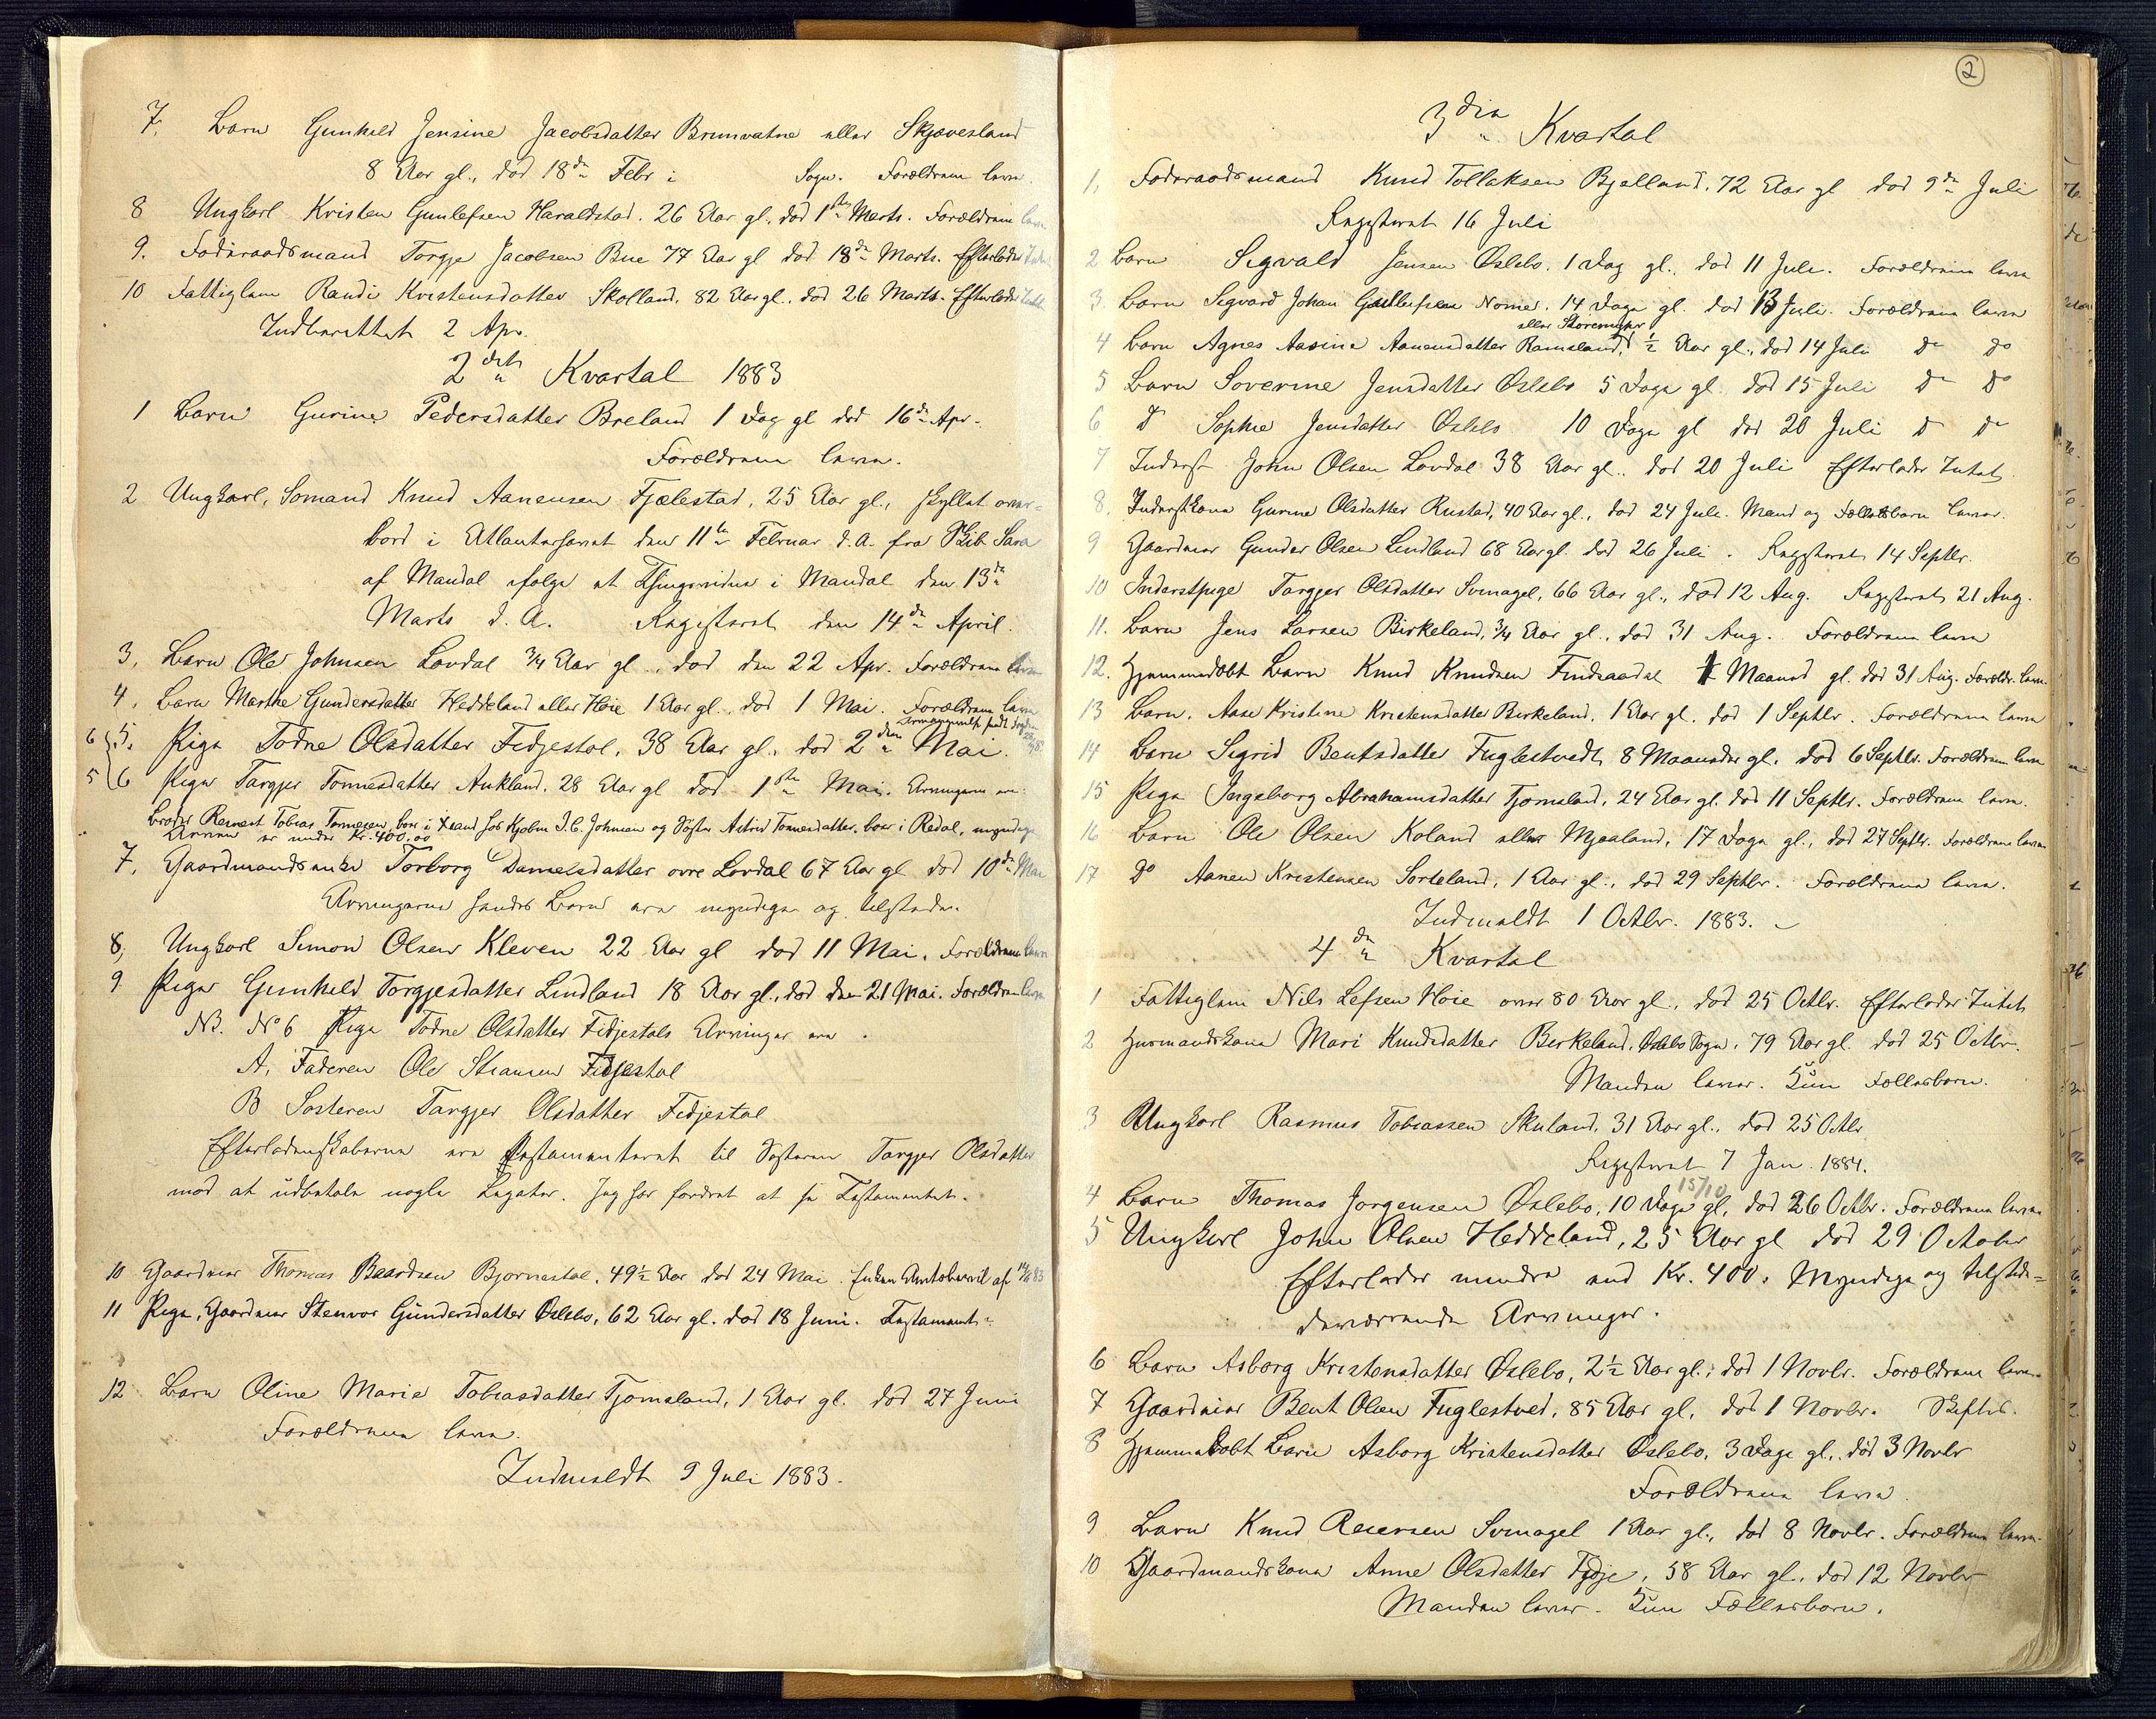 7. Barn Gunhild Jensine Jacobsdatter Brunvatne eller Skjævesland
8 Aar gl., død 18de Febr i Sogn. Forældrene leve.
8 Ungkarl Kristen Gunlefsen Haraldstad. 26 Aar gl. død 1ste Marts. Forældrene leve
9. Føderaadsmand Torgje Jacobsen Bue 77 Aar gl død 18de Marts. Efterlader Intet
10 Fattiglem Randi Kristensdatter Skofland. 82 Aar gl. død 26 Marts. Efterlader Intet
Indberettet 2 Apr.
2det Kvartal 1883
1 Barn Gurine Pedersdatter Breland 1 Dag gl død 16de Apr.
Forældrene leve.
2 Ungkarl, Sømand Knud Aanensen Fjælestad, 25 Aar gl., skyllet over-
bord i Atlanterhavet den 11te Februar d.A. fra Skib Sara
af Mandal ifølge et Thingsvidne i Mandal den 13de
Marts d.A. Registeret den 14de April.
3. Barn Ole Johnsen Lovdal 3/4 Aar gl., død den 22 Apr. Forældrene leve
4. Barn Marthe Gundersdatter Heddeland eller Høie 1 Aar gl. død 1 Mai. Forældrene leve
6 5. Pige Todne Olsdatter Fidjestøl, 38 Aar gl., død 2den Mai.
5 6 Pige Targjer Tønnesdatter Aukland. 28 Aar gl død 1ste Mai. Arvingerne ere:
Broder Reinert Tobias Tønnesen, bor i Xsand hos Kjøbm J.C. Johnsen og Søster Astrid Tønnesdatter, bor i Redal, myndige
Arven er under Kr. 400.00
7. Gaardmandsenke Torborg Danielsdatter øvre Lovdal 67 Aar gl død 10de Mai
Arvingerne hendes Børn ere myndige og tilstede.
8, Ungkarl Simon Olsen Kleven 22 Aar gl død 11 Mai. Forældrene leve
9 Pige Gunhild Torgjesdatter Lindland 18 Aar gl., død den 21 Mai. Forældrene leve
NB. No 6 Pige Todne Olsdatter Fidjestøls Arvinger ere.
A. Faderen Ole Fidjestøl
B Søsteren Targjer Olsdatter Fidjestøl
Efterladenskaberne ere testamenteret til Søsteren Targjer Olsdatter
mod at udbetale nogle Legater. Jeg har fordret at se Testamentet.
10 Gaardeier Thomas Baardsen Bjørnestøl. 49½ Aar død 24 Mai. Enken
11 Pige, Gaardeier Stenvor Gundersdatter Øslebø, 62 Aar gl. død 18 Juni. Testament.
12. Barn Oline Marie Tobiasdatter Tjomsland, 1 Aar gl. død 27 Juni
Forældrene leve.
Indmeldt 9 Juli 1883.
2
3die Kvartal
1. Føderaadsmand Knud Tollaksen Bjelland. 72 Aar gl død 9de Juli
Registeret 16 Juli
2 Barn Sigvald Jensen Øslebø. 1 Dag gl. død 11 Juli. Forældrene leve
3 Barn Sigvard Johan Nome. 14 Dage gl. død 13 Juli. Forældrene leve
eller Storemyhr
4 Barn Agnes Aasine Aanensdatter Ramsland, ½ Aar gl., død 14 Juli do do
5 Barn Soverine Jensdatter Øslebø 5 Dage gl. død 15 Juli do do
6 do Sophie Jensdatter Øslebø 10 Dage gl død 20 Juli do do
7 Inderst John Olsen Lovdal 38 Aar gl. død 20 Juli Efterlader Intet
8. Inderstkone Gurine Olsdatter Rustad, 40 Aar gl., død 24 Juli. Mand og Fællesbarn lever.
9 Gaardeier Gunder Olsen Lindland 68 Aar gl. død 26 Juli. Registeret 14 Septbr.
10 Inderstpige Targjer Olsdatter Svinagel, 66 Aar gl., død 12 Aug. Registeret 21 Aug.
11. Barn Jens Larsen Birkeland, 3/4 Aar gl., død 31 Aug. Forældrene leve
12. Hjemmedøbt Barn Knud Knudsen Findsaadal 1 Maaned gl. død 31 Aug. Forældr. leve.
13 Barn. Aase Kristine Kristensdatter Birkeland. 1 Aar gl. død 1 Septbr. Forældrene leve
14 Barn Sigrid Bentsdatter Fuglestvedt 8 Maaneder gl. død 6 Septbr. Forældrene leve
15 Pige Ingeborg Abrahamsdatter Tjomsland, 24 Aar gl. død 11 Septbr. Forældrene leve.
16 Barn Ole Olsen Koland eller Mjaaland, 17 Dage gl., død 27 Septbr. Forældrene leve
17 do Aanen Kristensen Sorteland, 1 Aar gl., død 29 Septbr. Forældrene leve.
Indmeldt 1 Octbr. 1883.
4de Kvartal
1 Fattiglem Nils Lefsen Høie over 80 Aar gl. død 25 Octbr. Efterlader Intet
2 Husmandskone Mari Knudsdatter Birkeland, Øslebø Sogn, 79 Aar gl. død 25 Octbr.
Manden lever. Kun Fællesbørn.
3 Ungkarl Rasmus Tobiassen Skuland, 31 Aar gl., død 25 Octbr
Registeret 7 Jan. 1884.
15/10
4 Barn Thomas Jørgensen Øslebø, 10 Dage gl, død 26 Octbr. Forældrene leve
5 Ungkarl John Olsen Heddeland, 25 Aar gl død 29 October
Efterlader mindre end Kr. 400. Myndige og tilstede-
værende Arvinger.
6 Barn Asborg Kristensdatter Øslebø, 2½ Aar gl., død 1 Novbr. Forældrene leve.
7 Gaardeier Bent Olsen Fuglestved, 85 Aar gl. død 1 Novbr. Skiftes.
8 Hjemmedøbt Barn Asborg Kristensdatter Øslebø, 3 Dage gl., død 3 Novbr
Forældrene leve
9 Barn Knud Reiersen Svinagel 1 Aar gl., død 8 Novbr. Forældrene leve.
10 Gaardmandskone Anne Olsdatter Fidje, 58 Aar gl. død 12 Novbr
Manden lever. Kun Fællesbørn.